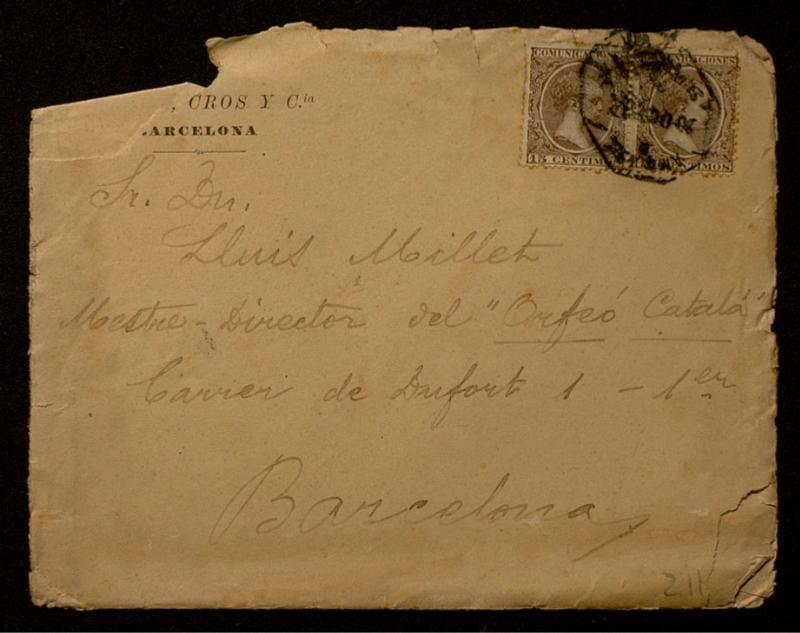 , CROS Y C.ia
ARCELONA
COMUNICA
CIONES
15 CENTIM
TIMOS
Sr. Dn.
Lluis Millet
Mestre-Director del "Orfeó Català"
Carrer de Dufort 1 - 1er
Barcelona
211